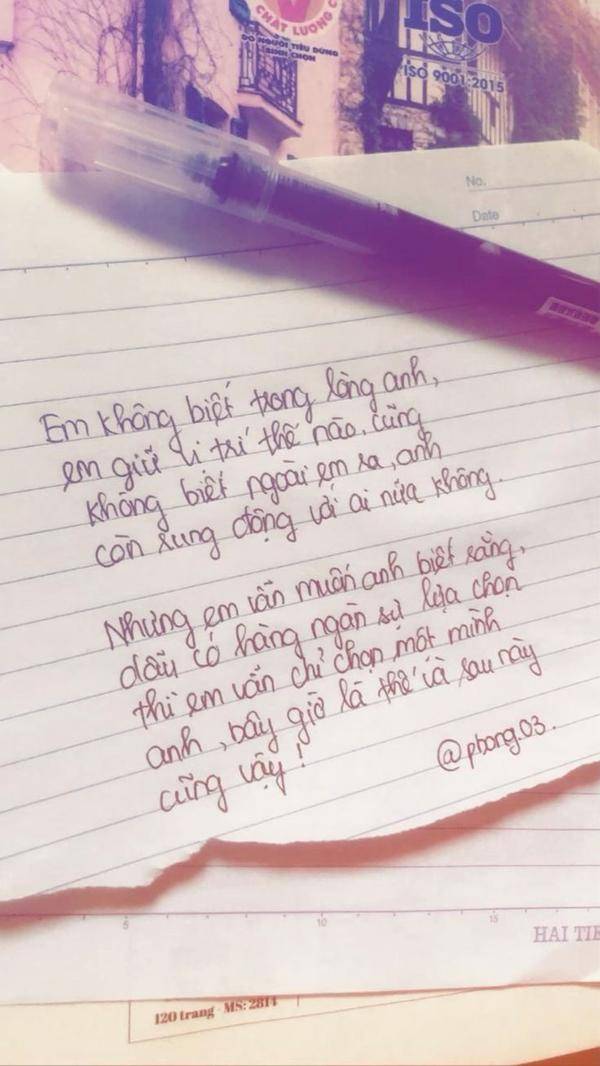 CHẤT LƯỢNG C
DO NGƯỜI TIÊU DÙNG
BÌNH CHỌN
ISO
ISO 9001:2015
No.
Date
Em không biết trong lòng anh,
em giữ vị trí thế nào, cũng
không biết ngoài em ra, anh
còn rung động với ai nữa không.
Nhưng em vẫn muốn anh biết rằng,
dẫu có hàng ngàn sự lựa chọn
thì em vẫn chỉ chọn một mình
anh, bây giờ là thế và sau này
cũng vậy!
@phong03.
5
10
15
HAI TIẾ
120 trang - MS: 2814